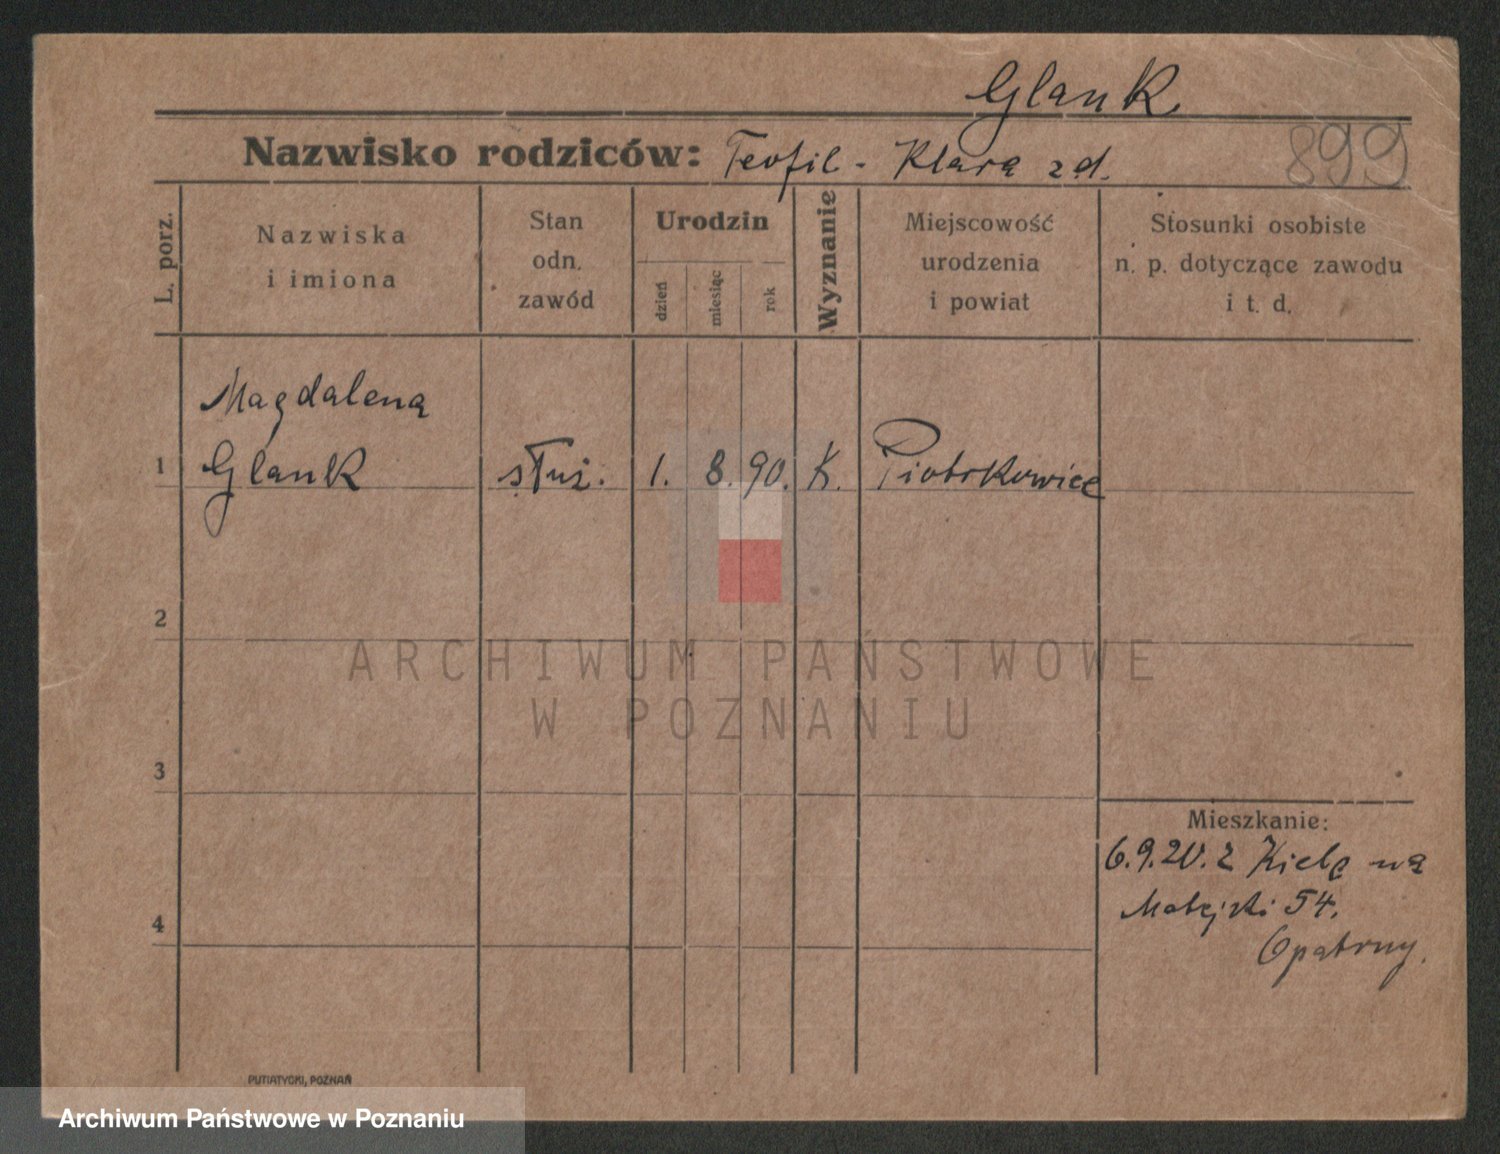 Glank
Nazwisko rodziców: Teofil - Klara zd.
899
L. porz.
Nazwiska
i imiona
Stan
odn.
zawód
Urodzin
dzień
miesiąc
rok
Wyznanie
Miejscowość
urodzenia
i powiat
Stosunki osobiste
n. p. dotyczące zawodu
i t. d.
Magdalena
1 Glank służ. 1. 8. 90. K. Piotrkowice
2
ARCHIWUM PAŃSTWOWE
W POZNANIU
3
Mieszkanie:
6.9.20. z Kielc na
Matejki 54.
4
Opatrny.
PUTIATYCKI, POZNAŃ
Archiwum Państwowe w Poznaniu